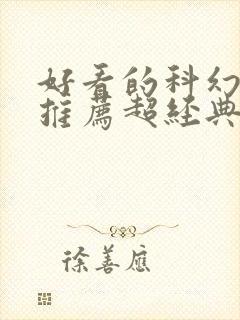 好看的科幻
推薦超經典
徐善應